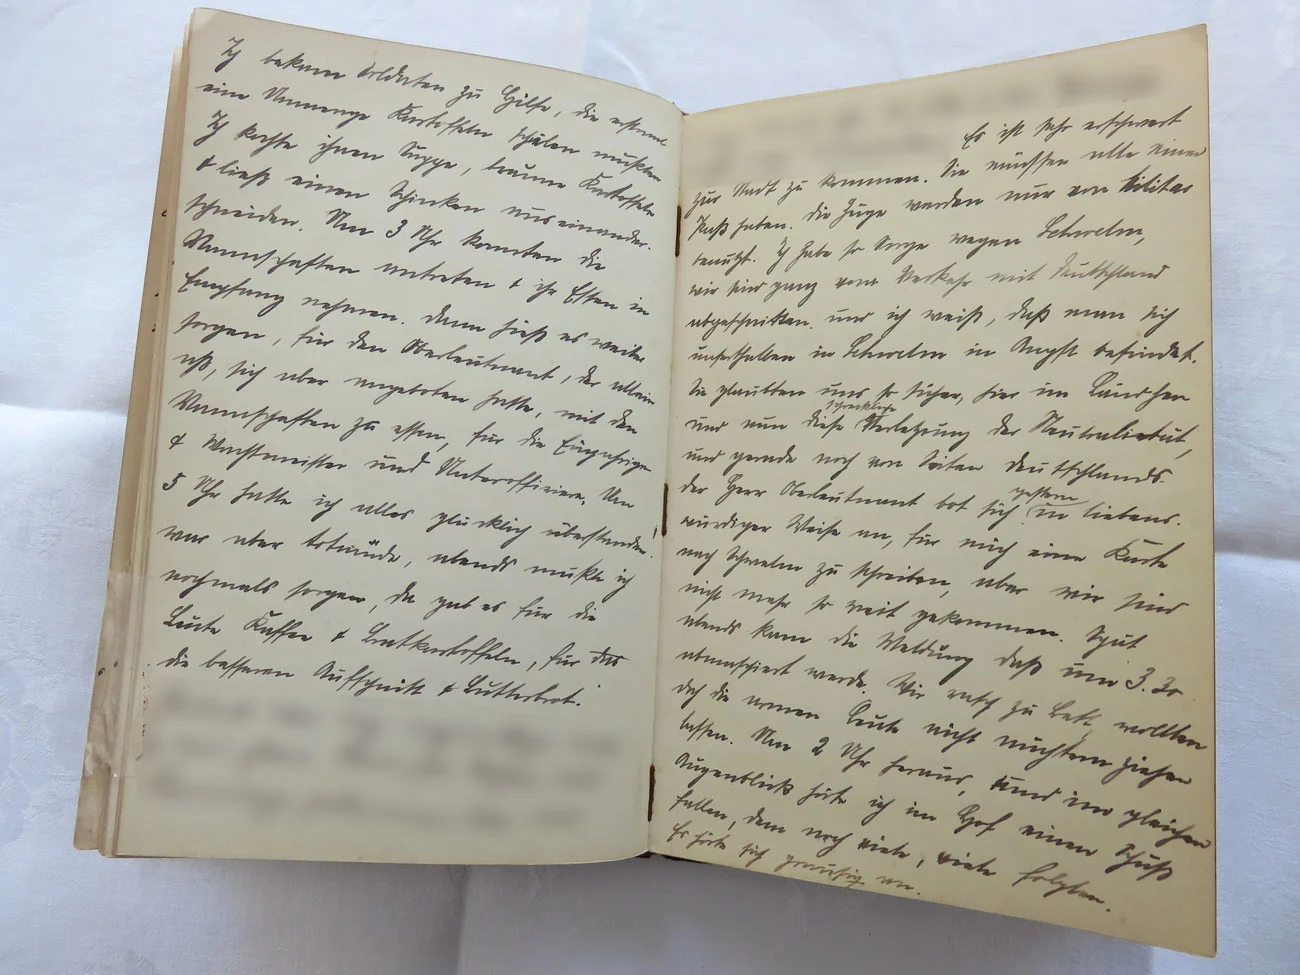 Ich bekam Soldaten zu Hilfe, die erstmal
eine Unmenge Kartoffeln schälen mußten
Ich kochte ihnen Suppe, braune Kartoffeln
& ließ einen Schinken auseinander-
schneiden. Um 3 Uhr konnten die
Mannschaften antreten & ihr Essen in
Empfang nehmen. Dann hieß es weiter
sorgen, für den Oberleutnant, der allein
aß, sich aber angeboten hatte, mit den
Mannschaften zu essen, für die Einjährigen
& Wachtmeister und Unteroffiziere. Um
5 Uhr hatte ich alles glücklich überstanden.
war aber todmüde, abends mußte ich
nochmals sorgen, da gab es für die
Leute Kaffee & Bratkartoffeln, für
die besseren Aufschnitt & Butterbrot.
Es ist sehr erschwert
zur Stadt zu kommen. Sie müssen alle einen
Paß haben. Die Züge werden nur von Militär
benutzt. Ich habe so Sorge wegen Schwelm,
wir sind ganz vom Verkehr mit Deutschland
abgeschnitten. und ich weiß, daß man sich
unserthalben in Schwelm in Angst befindet.
Sie glaubten uns so sicher, hier im Ländchen
und nun diese schreckliche Verletzung der Neutralität,
und gerade noch von Seiten Deutschlands.
Der Herr Oberleutnant bot sich gestern in liebens-
würdiger Weise an, für mich eine Karte
nach Schwelm zu schreiben, aber wir sind
nicht mehr so weit gekommen. Spät
abends kam die Meldung daß um 3.30
abmarschiert werde. Wir rasch zu Bett, wollten
doch die armen Leute nicht nüchtern ziehen
lassen. Um 2 Uhr heraus, und im gleichen
Augenblick hörte ich im Hof einen Schuß
fallen, dem noch viele, viele folgten.
Es hörte sich grausig an.